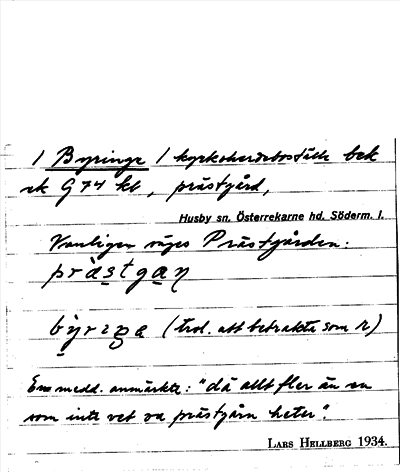 / Byringe / kyrkoherdeboställe bek
ek G 74 kb, prästgård,
Husby sn. Österrekarne hd. Söderm. l.
Vanligen säges Prästgården.
präs̱tga̱ṉ
(trol. att betrakta som r)
En medd. anmärkte: "då allt fler än en
som inte vet va prästgårn heter".
LARS HELLBERG 1934.